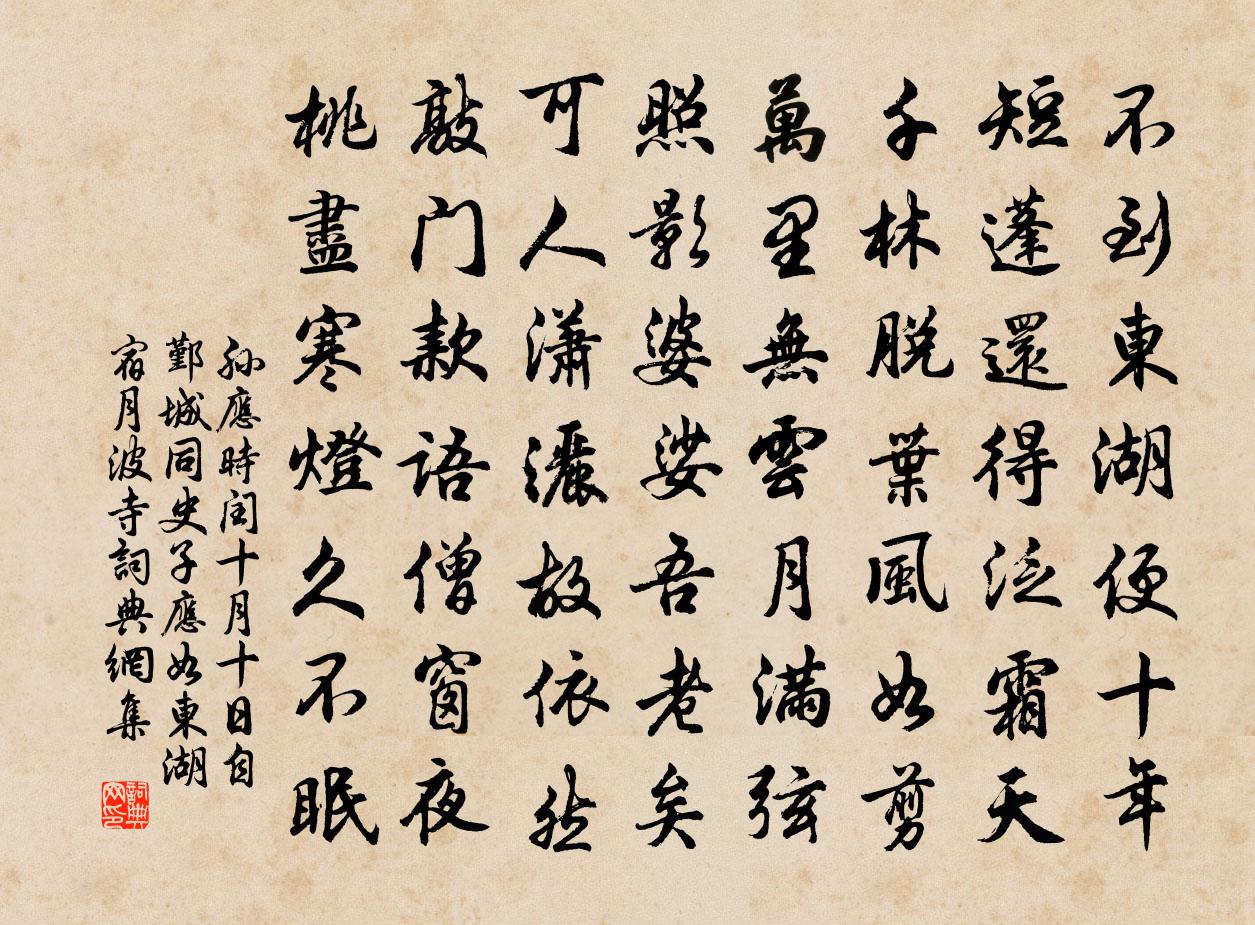 不到東湖便十年
短蓬還得泛霜天
千林脱葉風如剪
萬里無雲月滿弦
照影婆娑吾老矣
可人瀟灑故依然
敲门款語僧窗夜
桃盡寒燈久不眠
孫應時闰十月十日自
鄞城同史子應如東湖
宿月波寺詞典網集
詞典网印